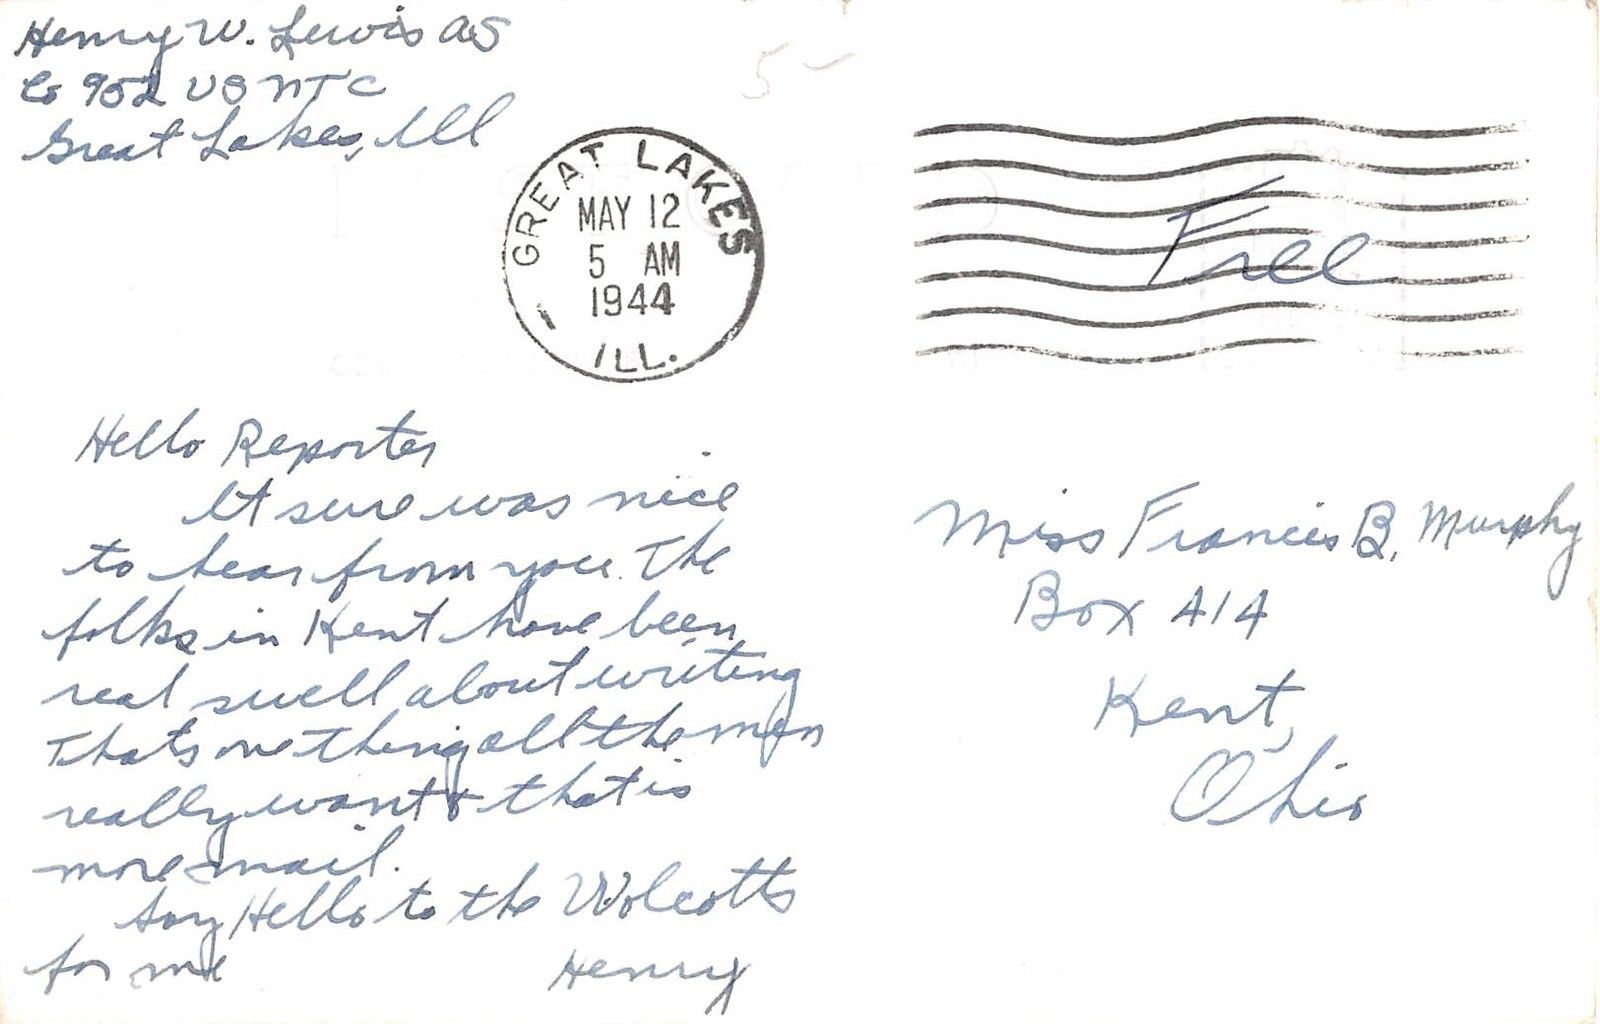 Henry W. Lewis AS
Co 952 USNTC
Great Lakes, Ill
5-
GREAT LAKES
MAY 12
5 AM
1944
ILL.
Free
Hello Reporter
It sure was nice
to hear from you. The
folks in Kent have been
real swell about writing
Thats one thing all the men
really want & that is
more mail.
Say Hello to the Wolcotts
for me
Henry
Miss Francis B. Murphy
Box 414
Kent,
Ohio